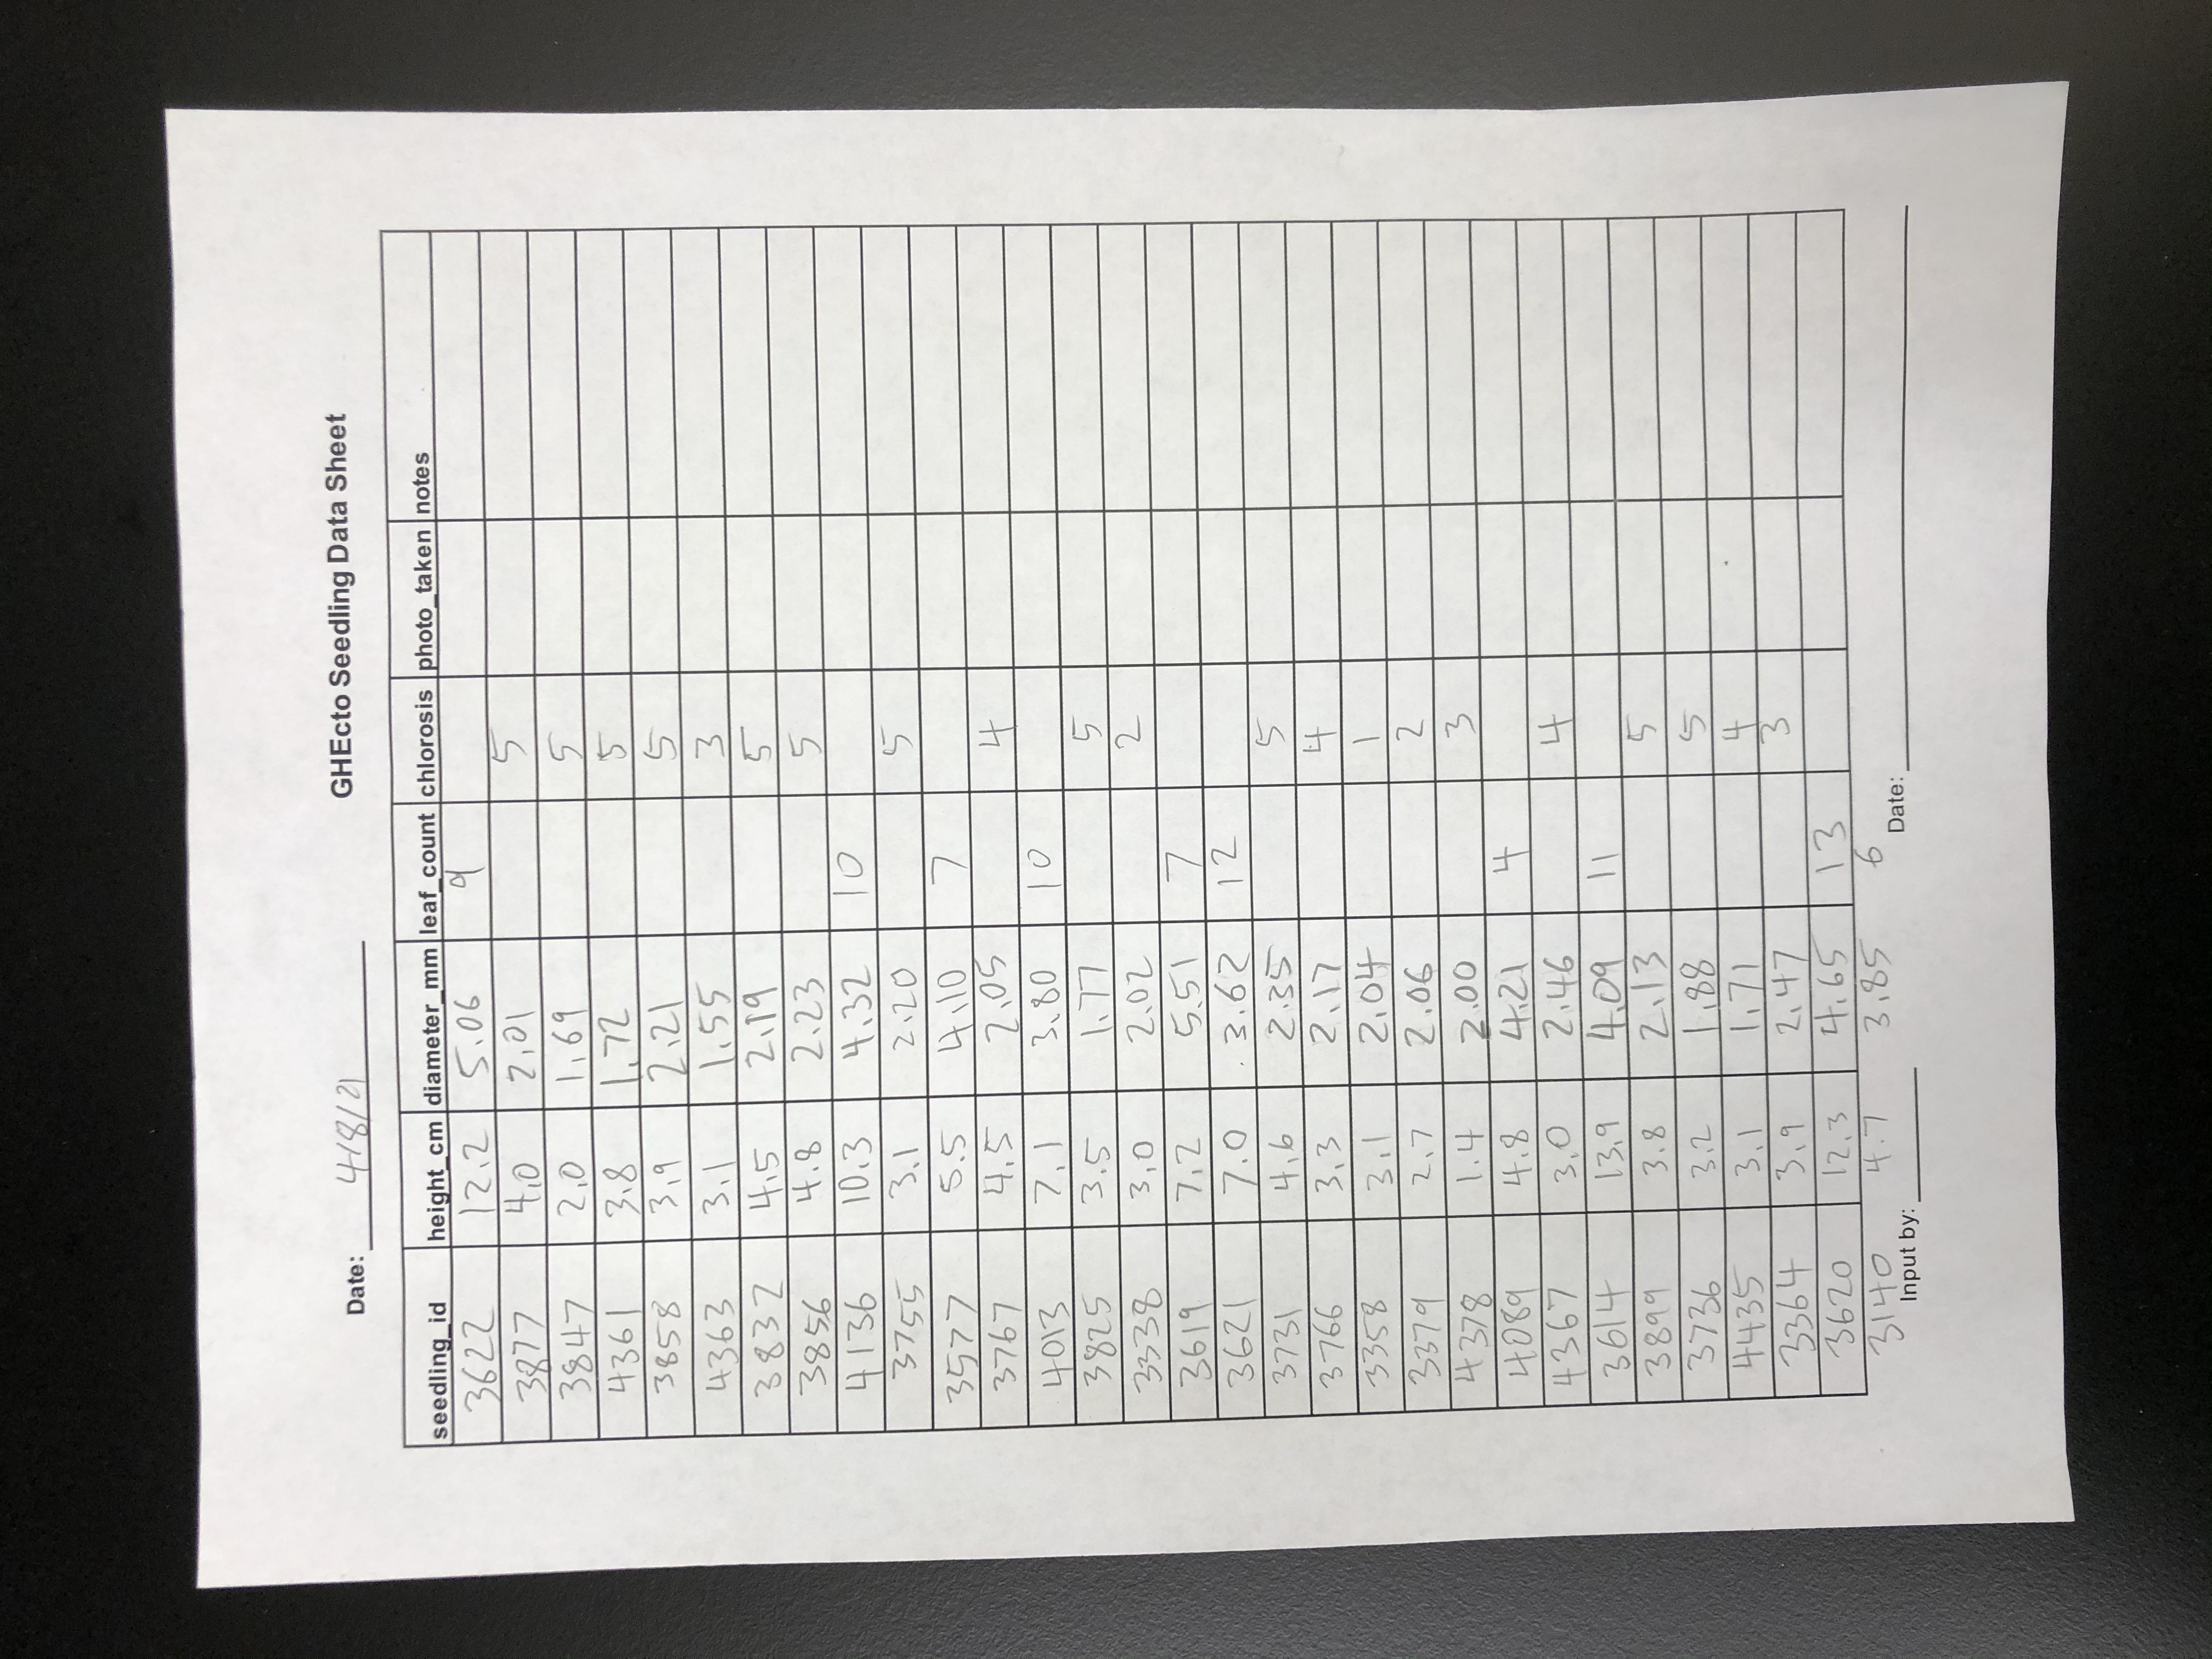 Date: 4/8/21 GHEcto Seedling Data Sheet
seedling_id height_cm diameter_mm leaf_count chlorosis photo_taken notes
3622 12.2 5.06 9
3877 4.0 2.01 5
3847 2.0 1.69 5
4361 3.8 1.72 5
3858 3.9 2.21 5
4363 3.1 1.55 3
3832 4.5 2.19 5
3856 4.8 2.23 5
4136 10.3 4.32 10
3755 3.1 2.20 5
3577 5.5 4.10 7
3767 4.5 2.05 4
4013 7.1 3.80 10
3825 3.5 1.77 5
3338 3.0 2.02 2
3619 7.2 5.51 7
3621 7.0 3.62 12
3731 4.6 2.35 5
3766 3.3 2.17 4
3358 3.1 2.04 1
3379 2.7 2.06 2
4378 1.4 2.00 3
4089 4.8 4.21 4
4367 3.0 2.46 4
3614 13.9 4.09 11
3899 3.8 2.13 5
3736 3.2 1.88 5
4435 3.1 1.71 4
3364 3.9 2.47 3
3620 12.3 4.65 13
3140 4.7 3.85 6
Input by: Date: